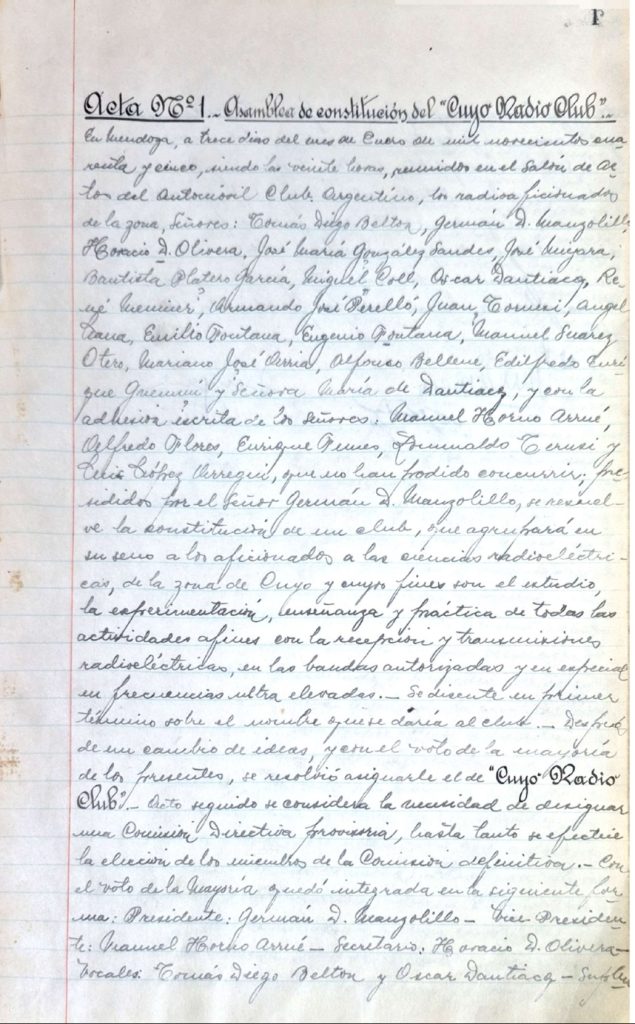 1
Acta Nº 1.- Asamblea de constitución del "Cuyo Radio Club".-
En Mendoza, a trece dias del mes de Enero de mil novecientos cua
renta y cinco, siendo las veinte horas, reunidos en el Salón de Ac
tos del Automóvil Club Argentino, los radioaficionados
de la zona, Señores: Tomás Diego Belton, Germán D. Manzolillo
Horacio D. Olivera, José María González Sandes, José
Bautista Platero García, Miguel Coll, Oscar Dantiacq, Re
né Armando José Perelló, Juan Angel
Emilio Fontana, Eugenio Fontana, Manuel Suarez
Otero, Mariano José Alfonso Bellene, Edilfredo Enri
que y Señora María de Dantiacq, y con la
adhesión escrita de los señores: Manuel Horno Arrué,
Alfredo Flores, Enrique y
Luis López Arregui, que no han podido concurrir; pre
sididos por el Señor Germán D. Manzolillo, se resuel
ve la constitución de un club, que agrupará en
su seno a los aficionados a las ciencias radioeléctri
cas, de la zona de Cuyo y cuyos fines son el estudio,
la experimentación, enseñanza y práctica de todas las
actividades afines con la recepción y transmisiones
radioeléctricas, en las bandas autorizadas y en especial
en frecuencias ultra elevadas.- Se discute en primer
término sobre el nombre que se daría al club.- Después
de un cambio de ideas, y con el voto de la mayoría
de los presentes, se resolvió asignarle el de "Cuyo Radio
Club".- Acto seguido se considera la necesidad de designar
una Comisión Directiva provisoria, hasta tanto se efectúe
la elección de los miembros de la Comisión definitiva.- Con
el voto de la Mayoría quedó integrada en la siguiente for
ma: Presidente: Germán D. Manzolillo - Vice-Presiden
te: Manuel Horno Arrué - Secretario: Horacio D. Olivera -
Vocales: Tomás Diego Belton y Oscar Dantiacq -